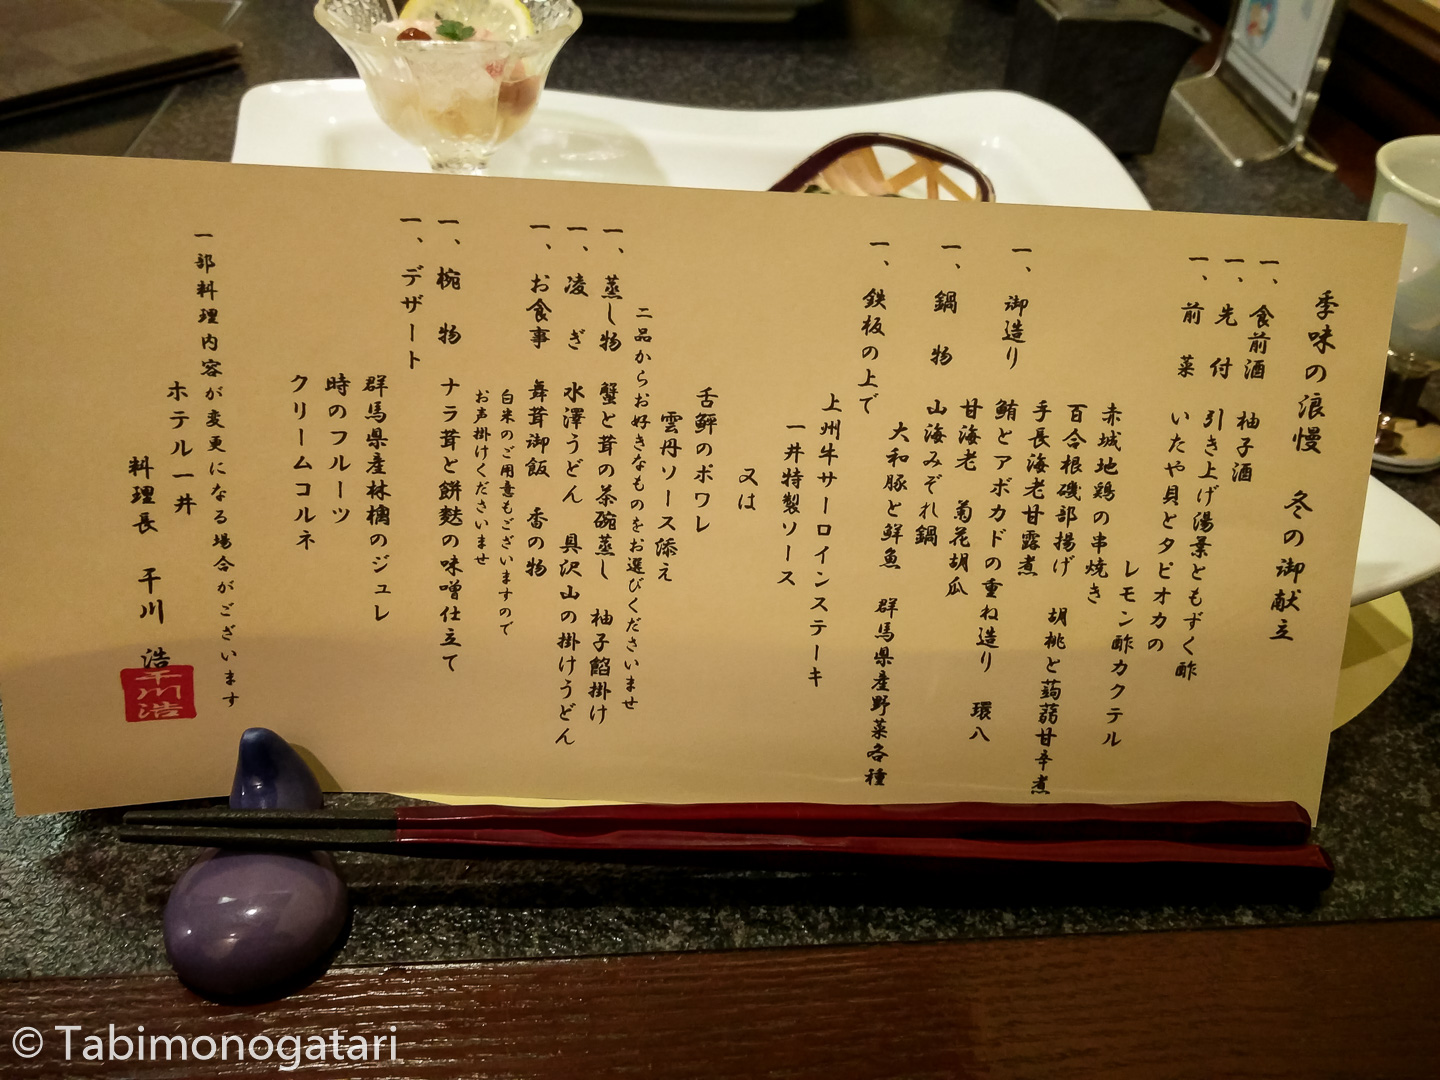 季味の浪慢　冬の御献立
一、食前酒　柚子酒
一、先付　引き上げ湯葉ともずく酢
一、前菜　いたや貝とタピオカの
レモン酢カクテル
赤城地鶏の串焼き
百合根磯部揚げ　胡桃と蒟蒻甘辛煮
手長海老甘露煮
一、御造り　鮪とアボカドの重ね造り　環八
甘海老　菊花胡瓜
一、鍋物　山海みぞれ鍋
大和豚と鮮魚　群馬県産野菜各種
一、鉄板の上で
上州牛サーロインステーキ
一井特製ソース
又は
舌鮃のポワレ
雲丹ソース添え
二品からお好きなものをお選びくださいませ
一、蒸し物　蟹と茸の茶碗蒸し　柚子餡掛け
一、凌ぎ　水澤うどん　具沢山の掛けうどん
一、お食事　舞茸御飯　香の物
白米のご用意もございますので
お声掛けくださいませ
一、椀物　ナラ茸と餅麩の味噌仕立て
一、デザート
群馬県産林檎のジュレ
時のフルーツ
クリームコルネ
一部料理内容が変更になる場合がございます
ホテル一井
料理長　干川　浩
干川浩
© Tabimonogatari